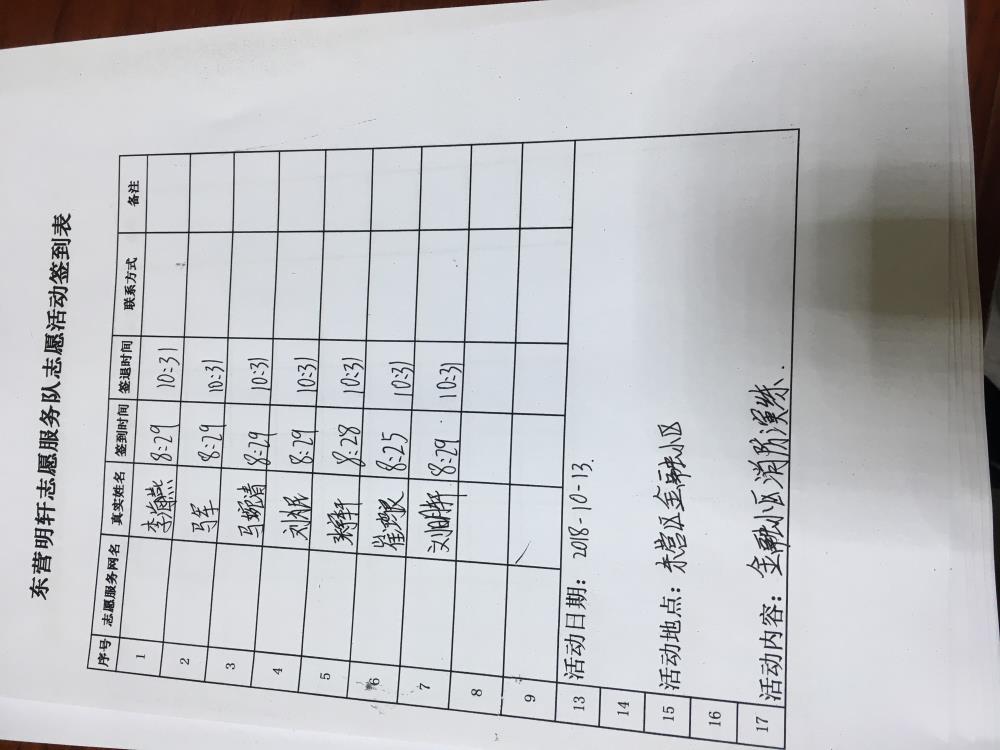 东营明轩志愿服务队志愿活动签到表
序号 志愿服务网名 真实姓名 签到时间 签退时间 联系方式 备注
1 李海燕 8:29 10:31
2 马军 8:29 10:31
3 马婉清 8:29 10:31
4 8:29 10:31
5 8:28 10:31
6 8:25 10:31
7 刘明轩 8:29 10:31
8
9
13 活动日期：2018-10-13.
14
15 活动地点：东营区金融小区
16
17 活动内容：金融小区消防演练.